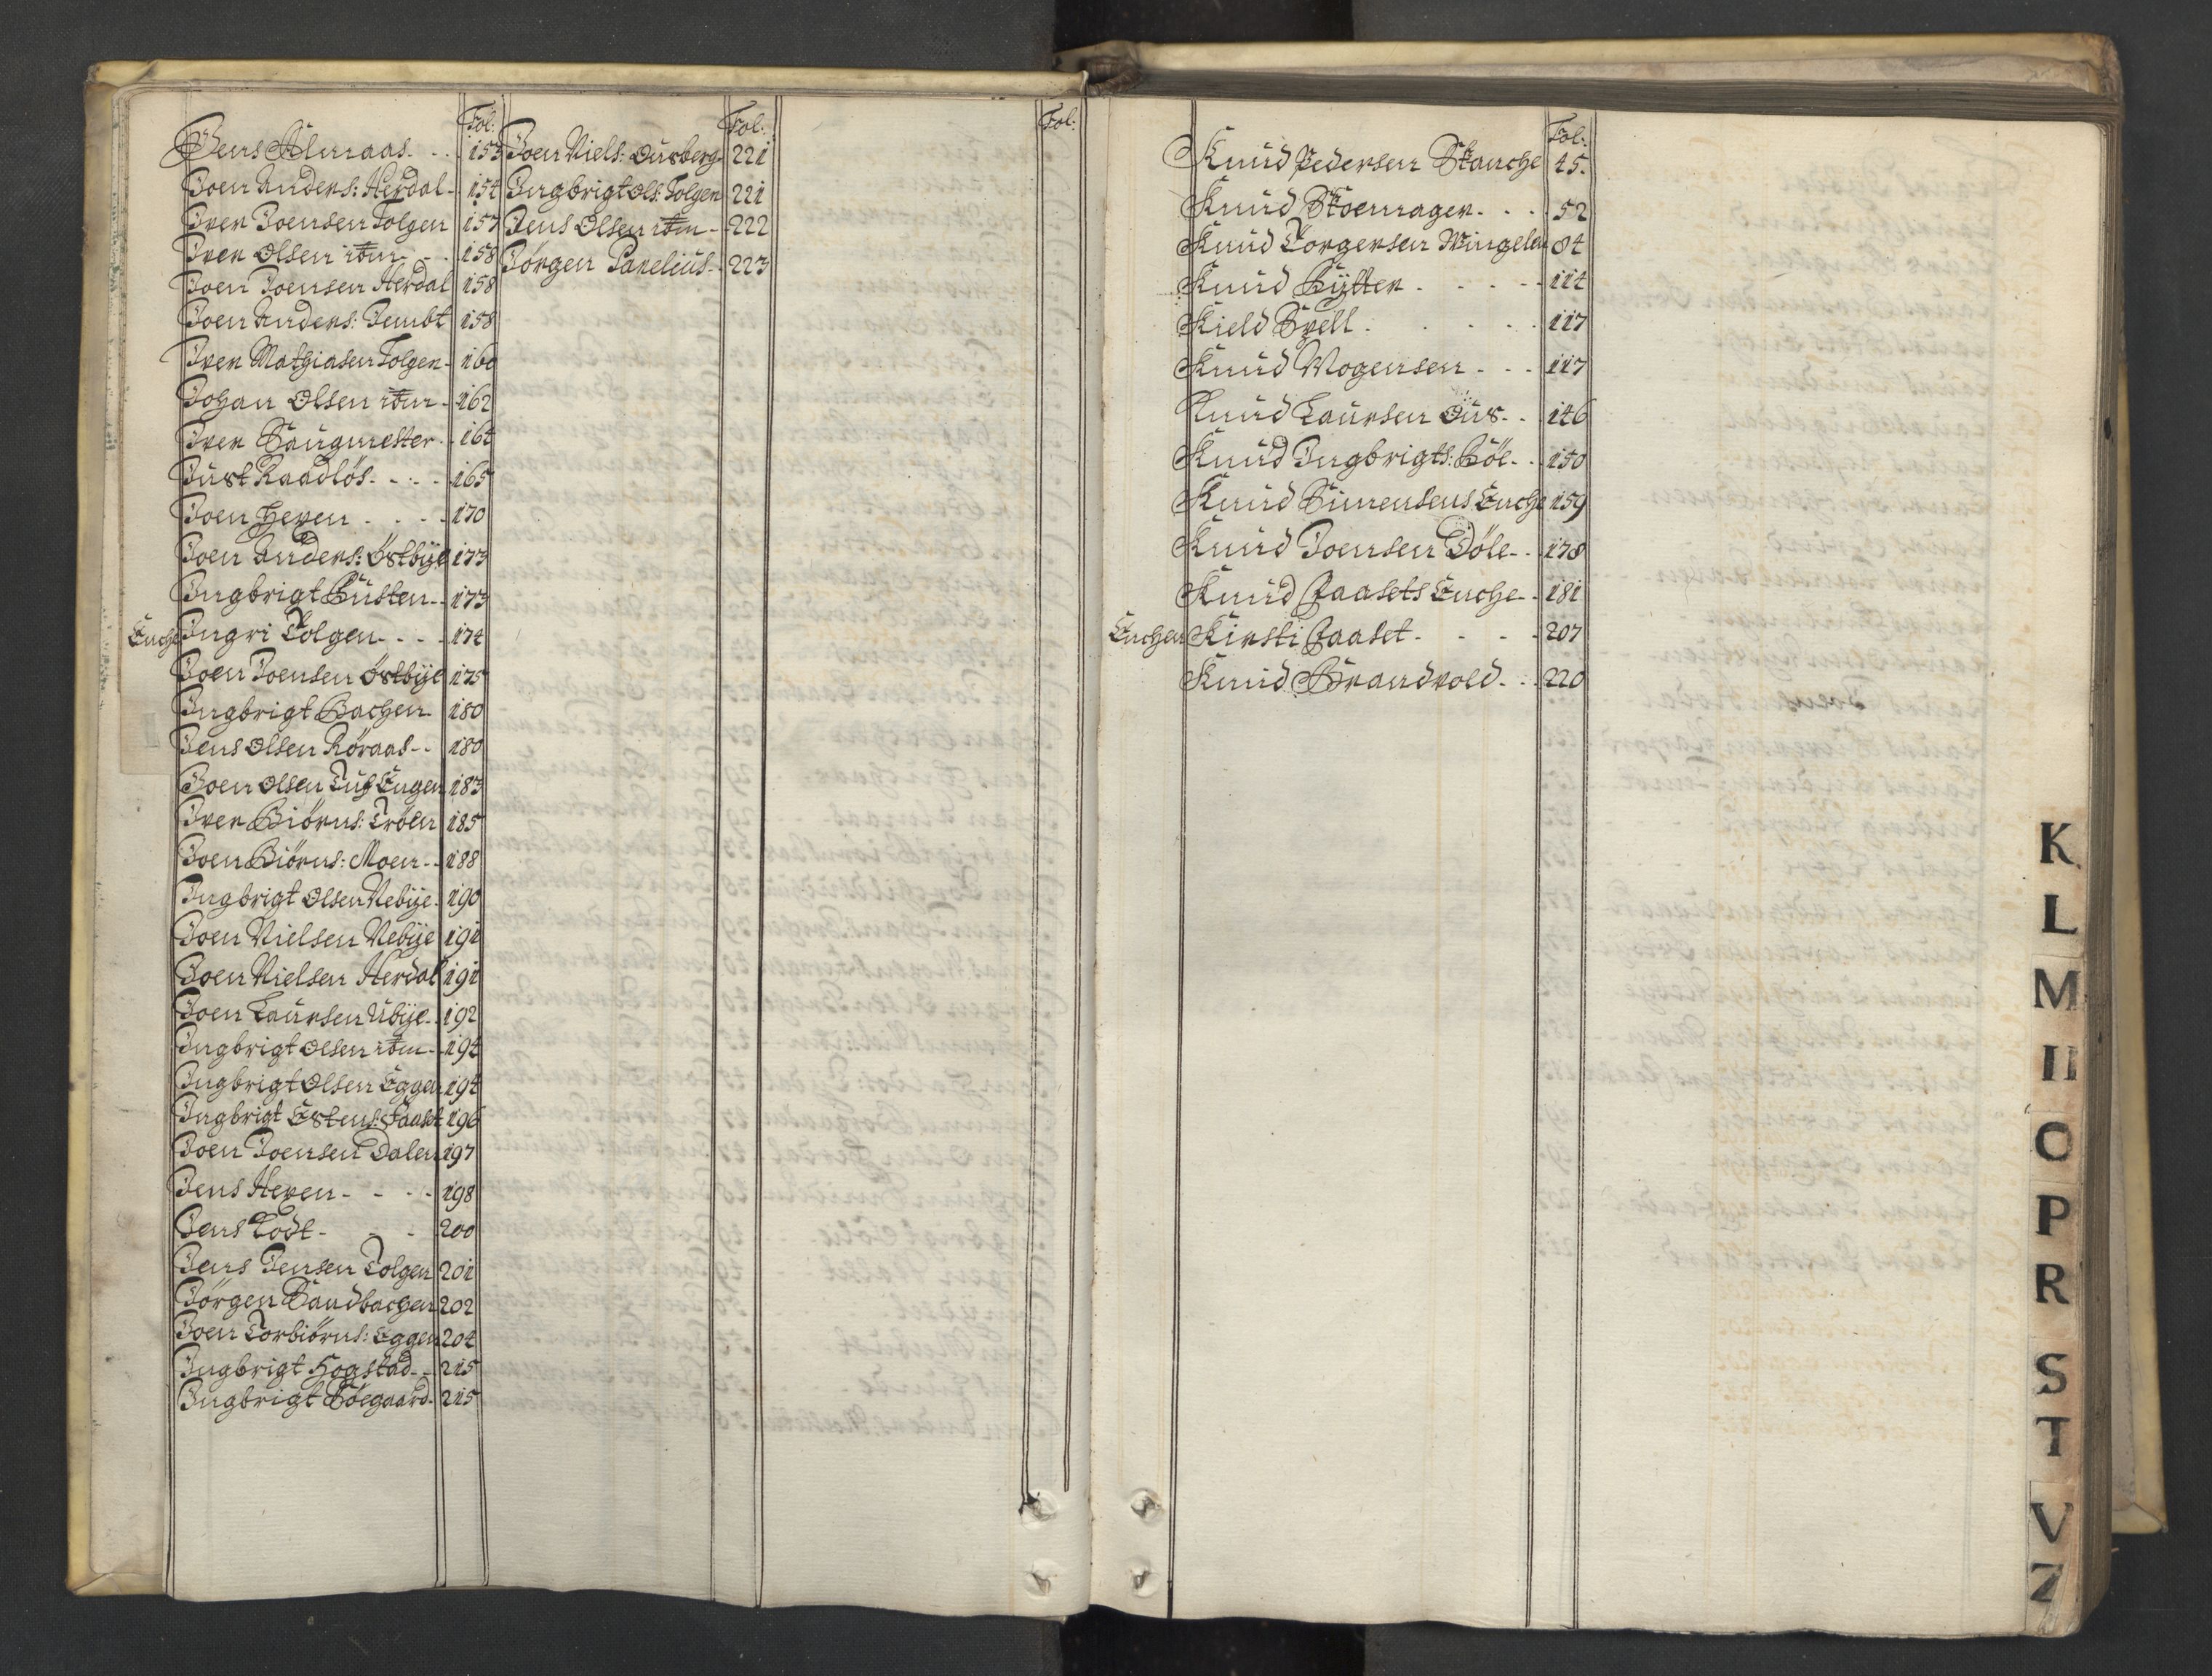 Fol:
Jens Almaas 153
Joen Anders: Herdal 154
Iver Joensen Tolgen 157
Iver Olsen itm 158
Joen Joensen Herdal 158
Joen Anders: Jembt 158
Iver Mathiasen Tolgen 160
Johan Olsen itm 162
Iver Saugmester 164
Just Raadløs 165
Joen Heven 170
Joen Anders: Østbÿe 173
Ingbrigt Busten 173
Enche Ingri Tolgen 174
Joen Joensen Østbÿe 175
Ingbrigt Bachen 180
Jens Olsen Røraas 180
Joen Olsen Engen 183
Iver Biörns: Tröen 185
Joen Biörns: Moen 188
Ingbrigt Olsen Nebÿe 190
Joen Nielsen Nebÿe 191
Joen Nielsen Herdal 191
Joen Laursen Ubÿe 192
Ingbrigt Olsen itm 194
Ingbrigt Olsen Eggen 194
Ingbrigt Estens: Faaset 196
Joen Joensen Dalen 197
Jens Heven 198
Jens Todt 200
Jens Jensen Tolgen 201
Jörgen Sandbachen 202
Joen Torbiörns: Eggen 204
Ingbrigt Hogstad 215
Ingbrigt Böegaard 215
Fol:
Joen Niels: Ousberg 221
Ingbrigt Ols: Tolgen 221
Jens Olsen itm 222
Jörgen Parelius 223
Fol:
Fol:
Knud Pedersen Stanche 45.
Knud Skoemager 52
Knud Torgersen Wingelen 84
Knud Hÿtter 114
Kield Svell 117
Knud Mogensen 117
Knud Laursen Ous 146
Knud Ingbrigts: Böe 150
Knud Simensens Enche 159
Knud Joensen Döle 178
Knud Faasets Enche 181
Enchen Kirsti Faaset 207
Knud Brandvold 220
K
L
M
N
O
P
R
S
T
V
Z